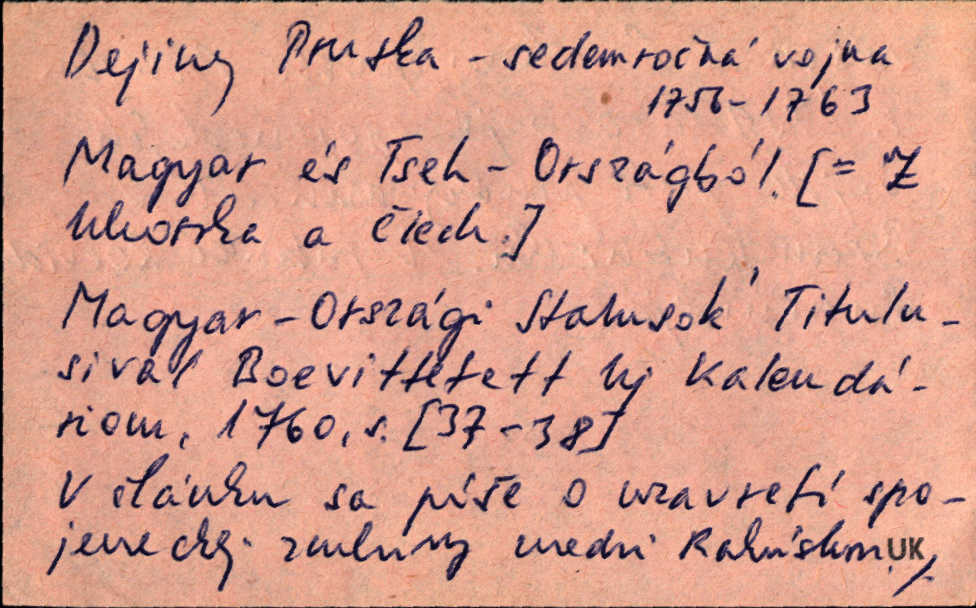 Dejiny Pruska - sedemročná vojna
1756-1763
Magyar és Tseh - Országból. [= Z
Uhorska a Čiech.]
Magyar-Országi Statusok' Titulu-
sival Boevittetett Uj Kalendá-
riom, 1760, s. [37-38]
V článku sa píše o uzavretí spo-
jeneckej zmluvy medzi Rakúskom,
UK